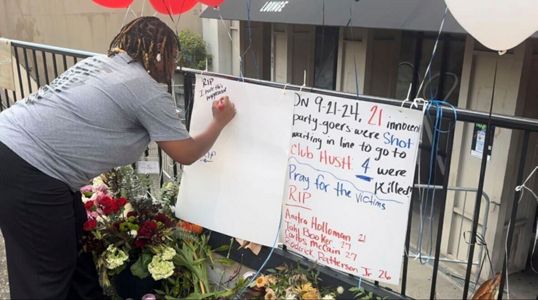 LOUNGE
RIP
I hate this
happened
On 9-21-24, 21 innocent
party-goers were Shot
waiting in line to go to
Club HUSH. 4 were
Killed!
Pray for the victims
RIP
Anitra Holloman 21
Taj Booker 27
Carlos McCain 27
Roderick Patterson Jr. 26